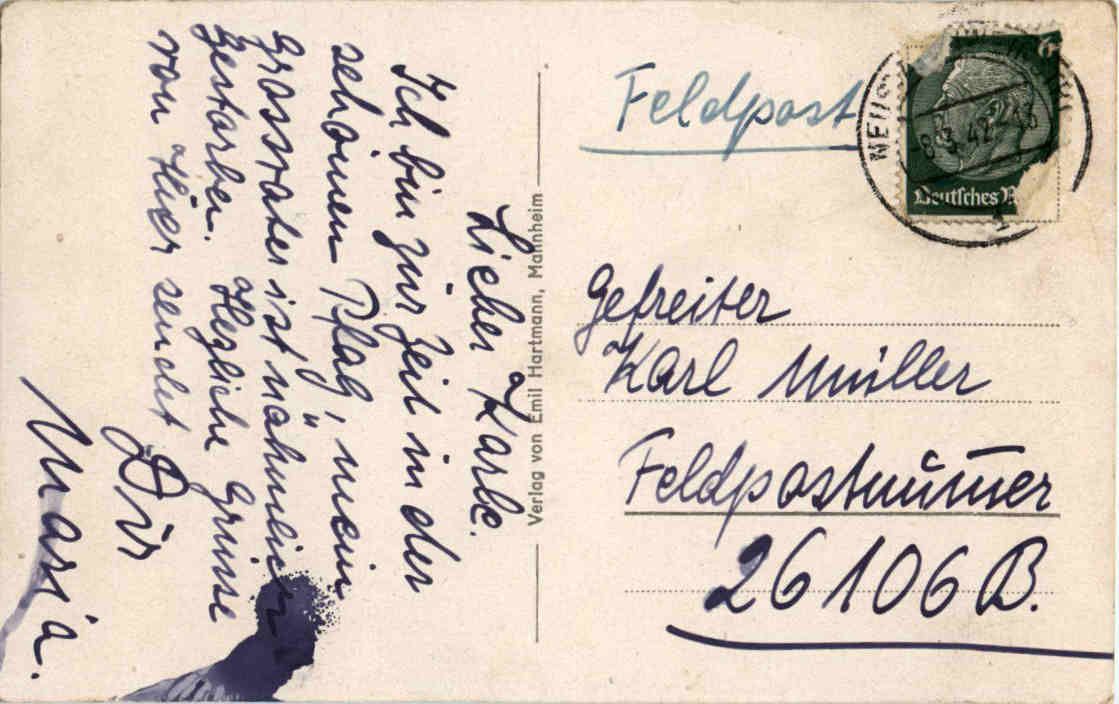 Lieber Karle.
Ich bin zur Zeit in der
schönen Pfalz, mein
Grossvater ist nähmlich
gestorben. Herzliche Grüsse
von Hier sendet
Dir
Maria.
Verlag von Emil Hartmann, Mannheim
Feldpost
8.3.42
Deutsches
Gefreiter
Karl Müller
Feldpostnummer
26106B.